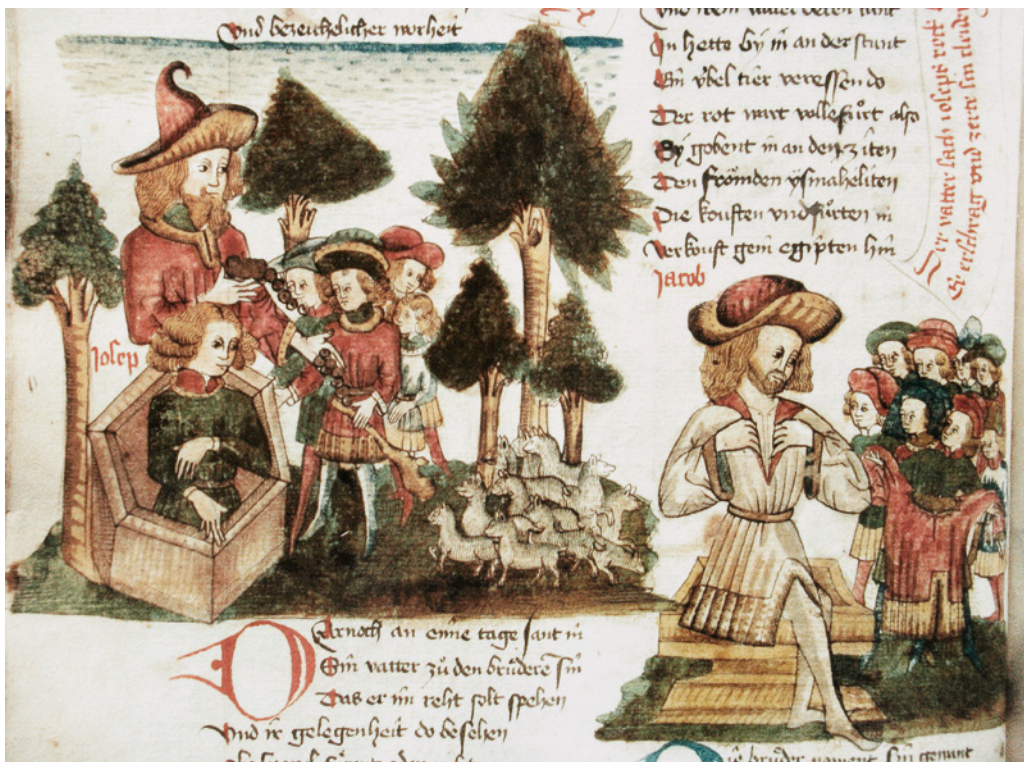 Vnd bezeichelicher worheit
Jn hette by in an der stunt
Ein vbel tier veressen do
Der rot wart vollefuͤrt also
Sy gobent in an den ziten
Den froͤmden ysmaheliten
Die kouften vnd fuͤrten in
Verkouft gein egipten hin
Jacob
Josep
Der vatter sach iosephs rok
Er erschrag vnd zerte sin cleid
Darnoch an eine tage sant in
Sin vatter zuͦ den bruͤdere sin
Das er im reht solt spehen
Vnd ir gelegenheit do besehen
Die bruͤder noment sin gewant